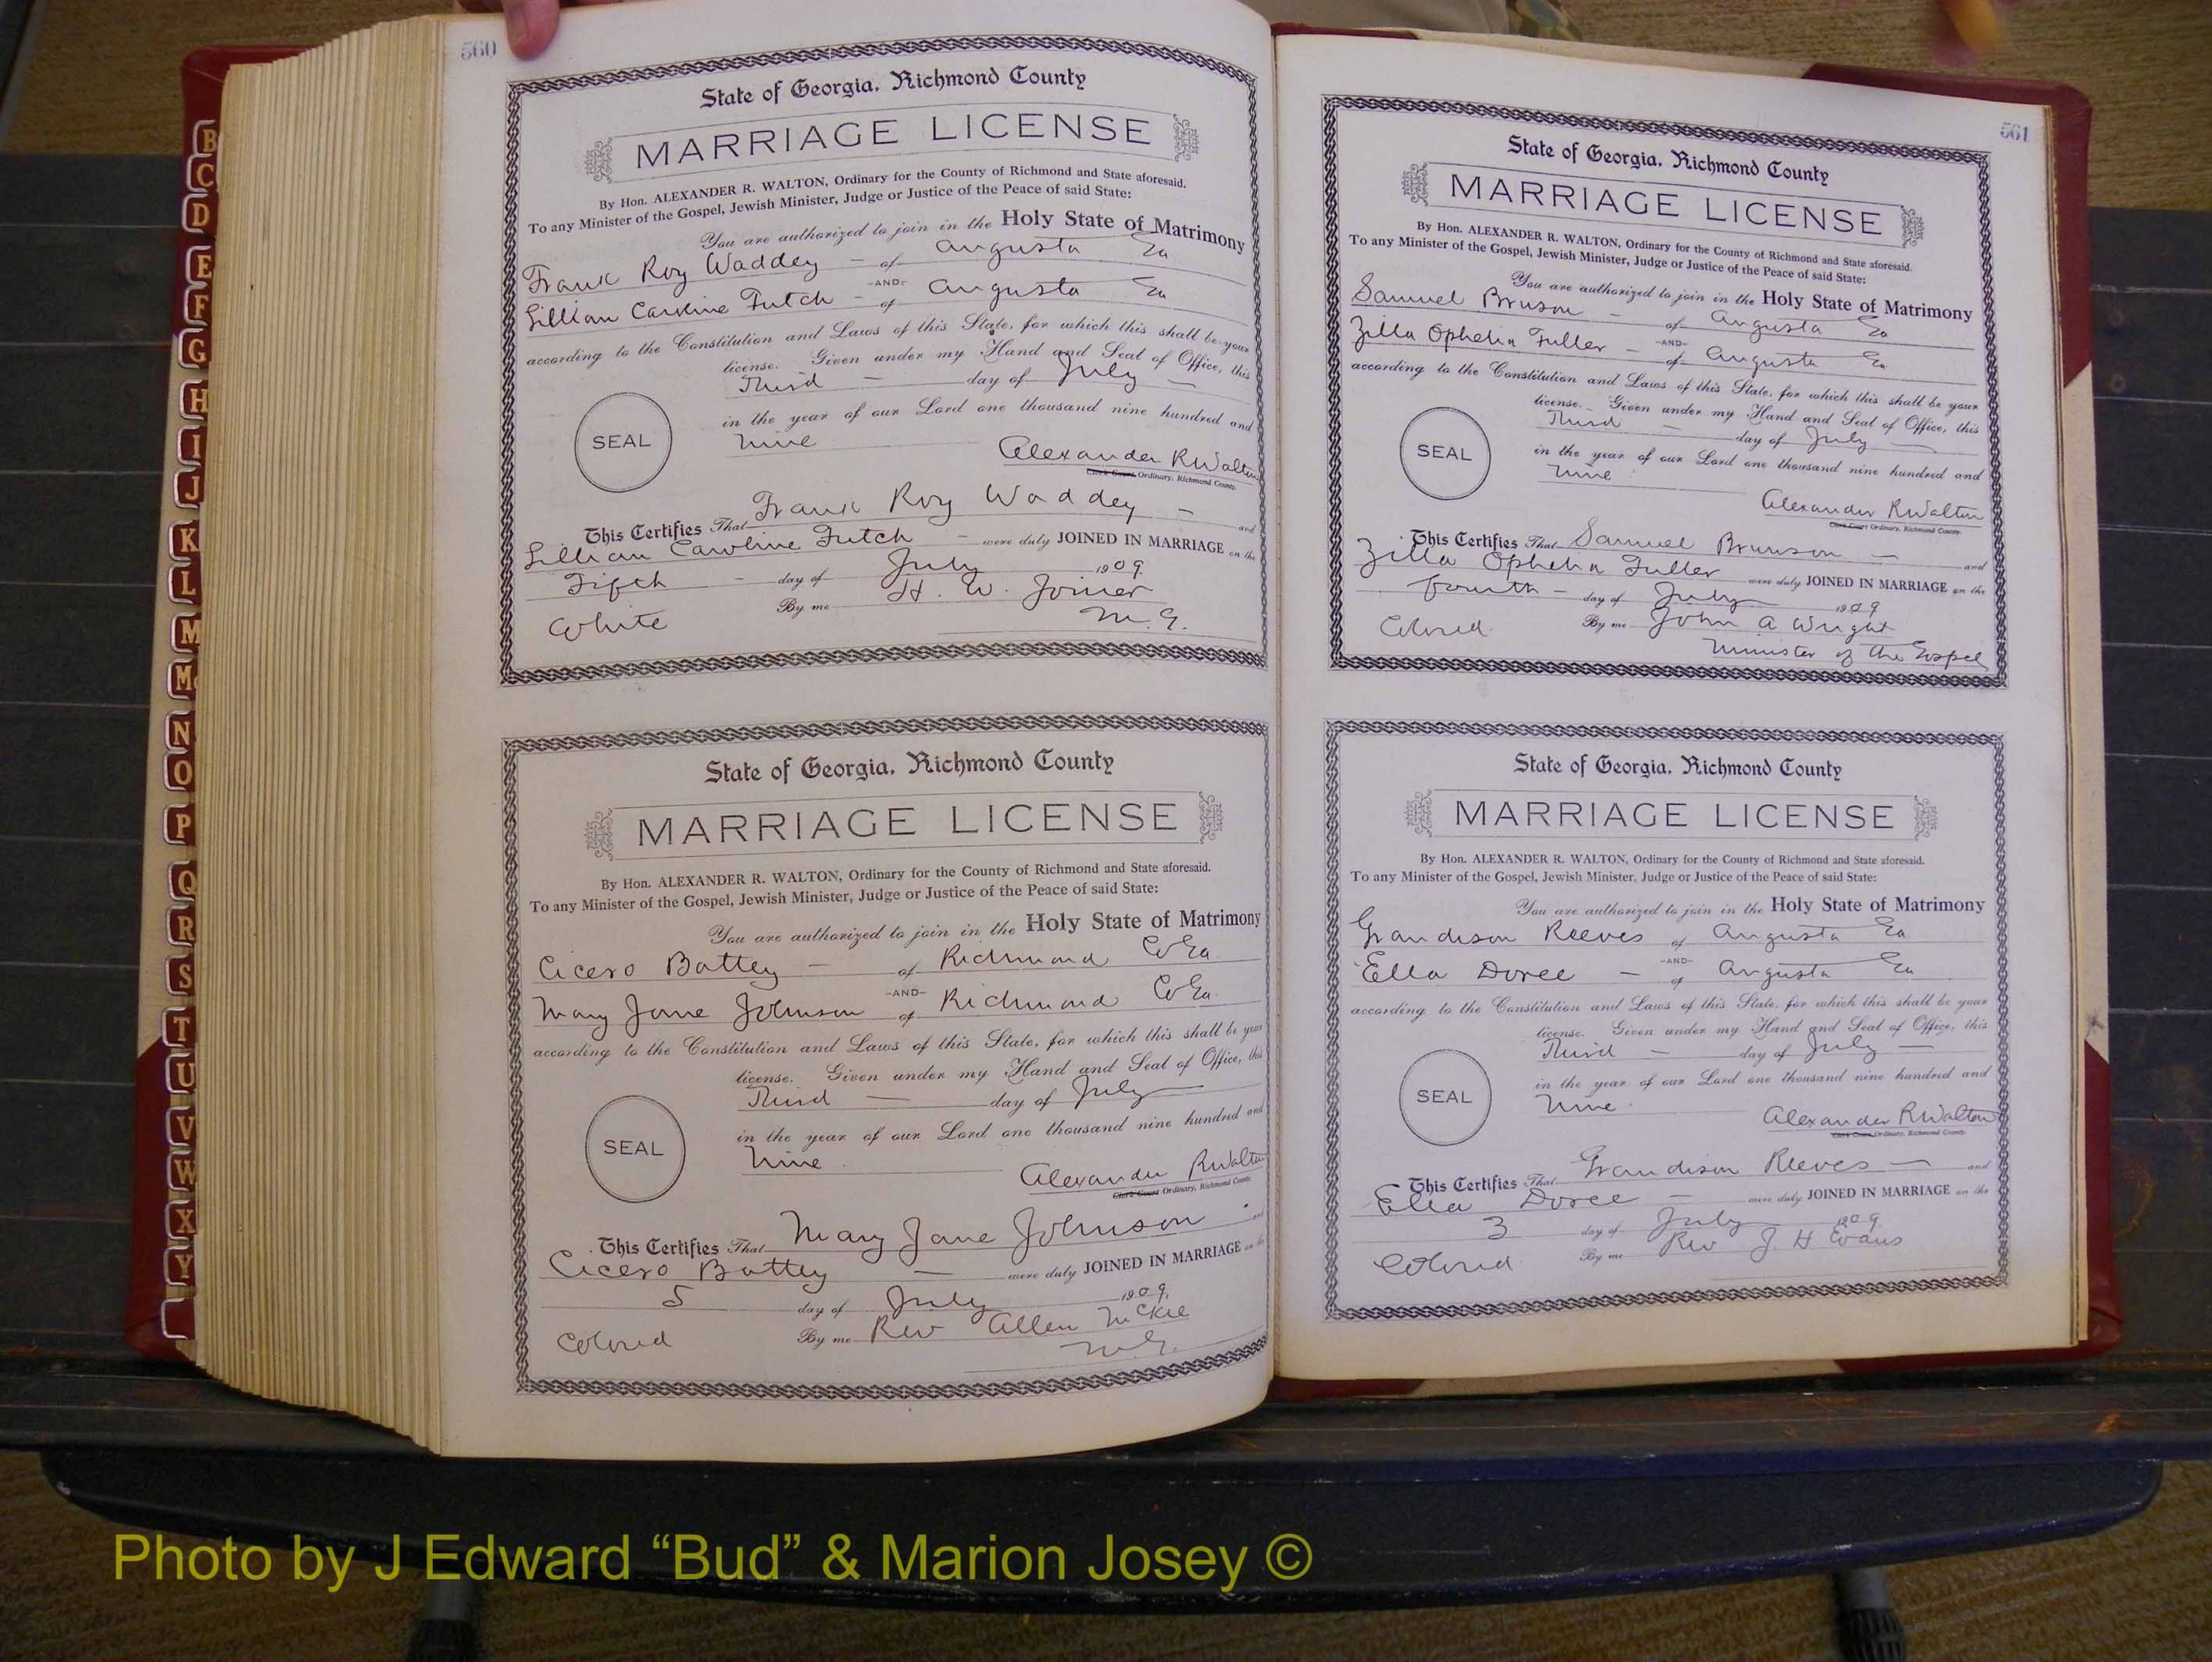 560
State of Georgia, Richmond County
MARRIAGE LICENSE
By Hon. ALEXANDER R. WALTON, Ordinary for the County of Richmond and State aforesaid.
To any Minister of the Gospel, Jewish Minister, Judge or Justice of the Peace of said State:
You are authorized to join in the Holy State of Matrimony
Frank Roy Waddey - of Augusta Ga
-AND-
Lillian Caroline Futch - of Augusta Ga
according to the Constitution and Laws of this State, for which this shall be your
license. Given under my Hand and Seal of Office, this
Third - day of July -
in the year of our Lord one thousand nine hundred and
SEAL
nine
Alexander R Walton
Clerk Court Ordinary, Richmond County.
This Certifies That Frank Roy Waddey - and
Lillian Caroline Futch - were duly JOINED IN MARRIAGE on the
Fifth - day of July 1909
By me H. W. Joiner
White M. G.
State of Georgia, Richmond County
MARRIAGE LICENSE
By Hon. ALEXANDER R. WALTON, Ordinary for the County of Richmond and State aforesaid.
To any Minister of the Gospel, Jewish Minister, Judge or Justice of the Peace of said State:
You are authorized to join in the Holy State of Matrimony
Cicero Battey - of Richmond Co Ga.
-AND-
Mary Jane Johnson of Richmond Co Ga.
according to the Constitution and Laws of this State, for which this shall be your
license. Given under my Hand and Seal of Office, this
Third - day of July
in the year of our Lord one thousand nine hundred and
SEAL
Nine
Alexander R Walton
Clerk Court Ordinary, Richmond County
This Certifies That Mary Jane Johnson and
Cicero Battey - were duly JOINED IN MARRIAGE on the
5 day of July 1909.
Colored By me Rev Allen McKie
M.G.
561
State of Georgia, Richmond County
MARRIAGE LICENSE
By Hon. ALEXANDER R. WALTON, Ordinary for the County of Richmond and State aforesaid.
To any Minister of the Gospel, Jewish Minister, Judge or Justice of the Peace of said State:
You are authorized to join in the Holy State of Matrimony
Samuel Brunson - of Augusta Ga
-AND-
Zilla Ophelia Fuller - of Augusta Ga
according to the Constitution and Laws of this State, for which this shall be your
license. Given under my Hand and Seal of Office, this
Third - day of July
in the year of our Lord one thousand nine hundred and
SEAL
nine
Alexander R Walton
Clerk Court Ordinary, Richmond County.
This Certifies That Samuel Brunson - and
Zilla Ophelia Fuller were duly JOINED IN MARRIAGE on the
fourth - day of July 1909
Colored By me John A Wright
Minister of the Gospel
State of Georgia, Richmond County
MARRIAGE LICENSE
By Hon. ALEXANDER R. WALTON, Ordinary for the County of Richmond and State aforesaid.
To any Minister of the Gospel, Jewish Minister, Judge or Justice of the Peace of said State:
You are authorized to join in the Holy State of Matrimony
Grandison Reeves of Augusta Ga
-AND-
Ella Doree - of Augusta Ga
according to the Constitution and Laws of this State, for which this shall be your
license. Given under my Hand and Seal of Office, this
Third - day of July -
in the year of our Lord one thousand nine hundred and
SEAL
Nine
Alexander R Walton
Clerk Court Ordinary, Richmond County.
This Certifies That Grandison Reeves - and
Ella Doree - were duly JOINED IN MARRIAGE on the
3 day of July 1909.
Colored By me Rev J. H Evans
B
C
D
E
F
G
H
I
J
K
L
M
Mc
N
O
P
Q
R
S
T
U
V
W
X
Y
Photo by J Edward “Bud” & Marion Josey ©